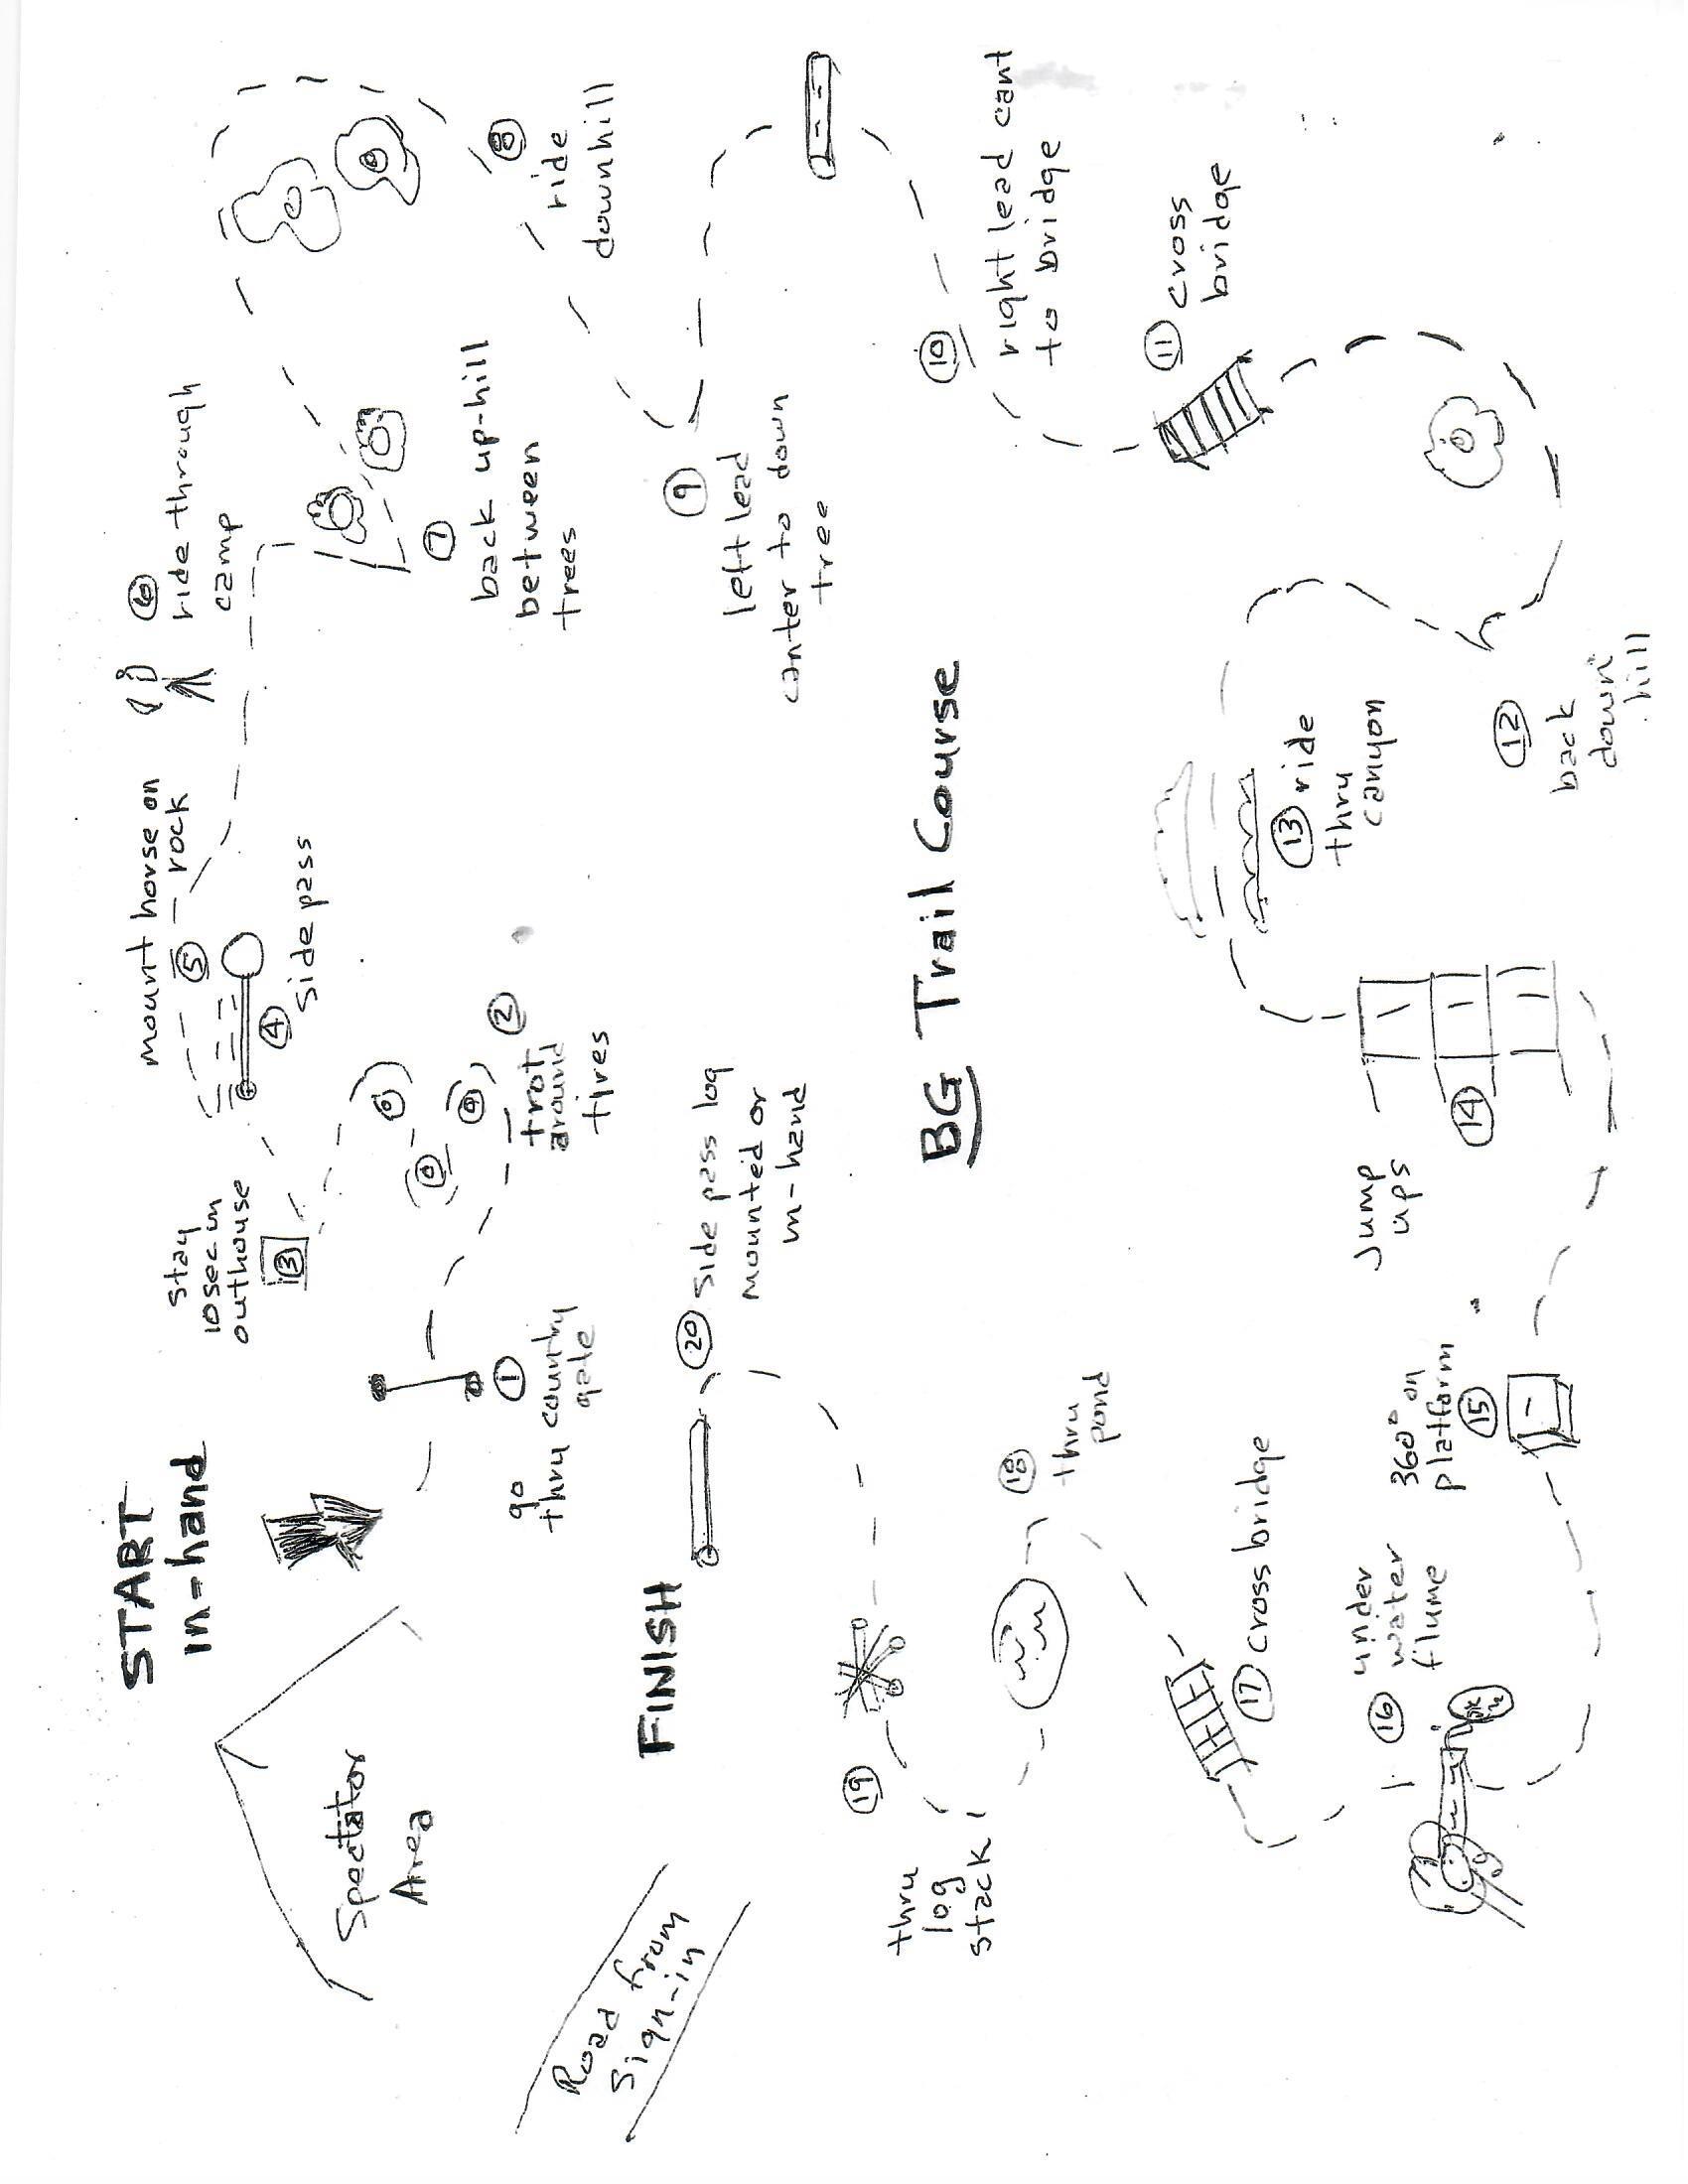 START
in-hand
Spectator
Area
Road from
Sign-in
①
go
thru country
gate
②
trot
around
tires
stay
10sec in
outhouse
③
④
side pass
mount horse on
rock
⑤
⑥
ride through
camp
⑦
back up-hill
between
trees
⑧
ride
downhill
⑨
left lead
canter to down
tree
⑩
right lead cant
to bridge
⑪ cross
bridge
⑫
back
down
hill
⑬ ride
thru
canyon
⑭
Jump
ups
360° on
platform
⑮
⑯ under
water
flume
⑰ cross bridge
⑱
thru
pond
⑲
thru
log
stack
⑳ Side pass log
mounted or
in-hand
FINISH
BG Trail Course